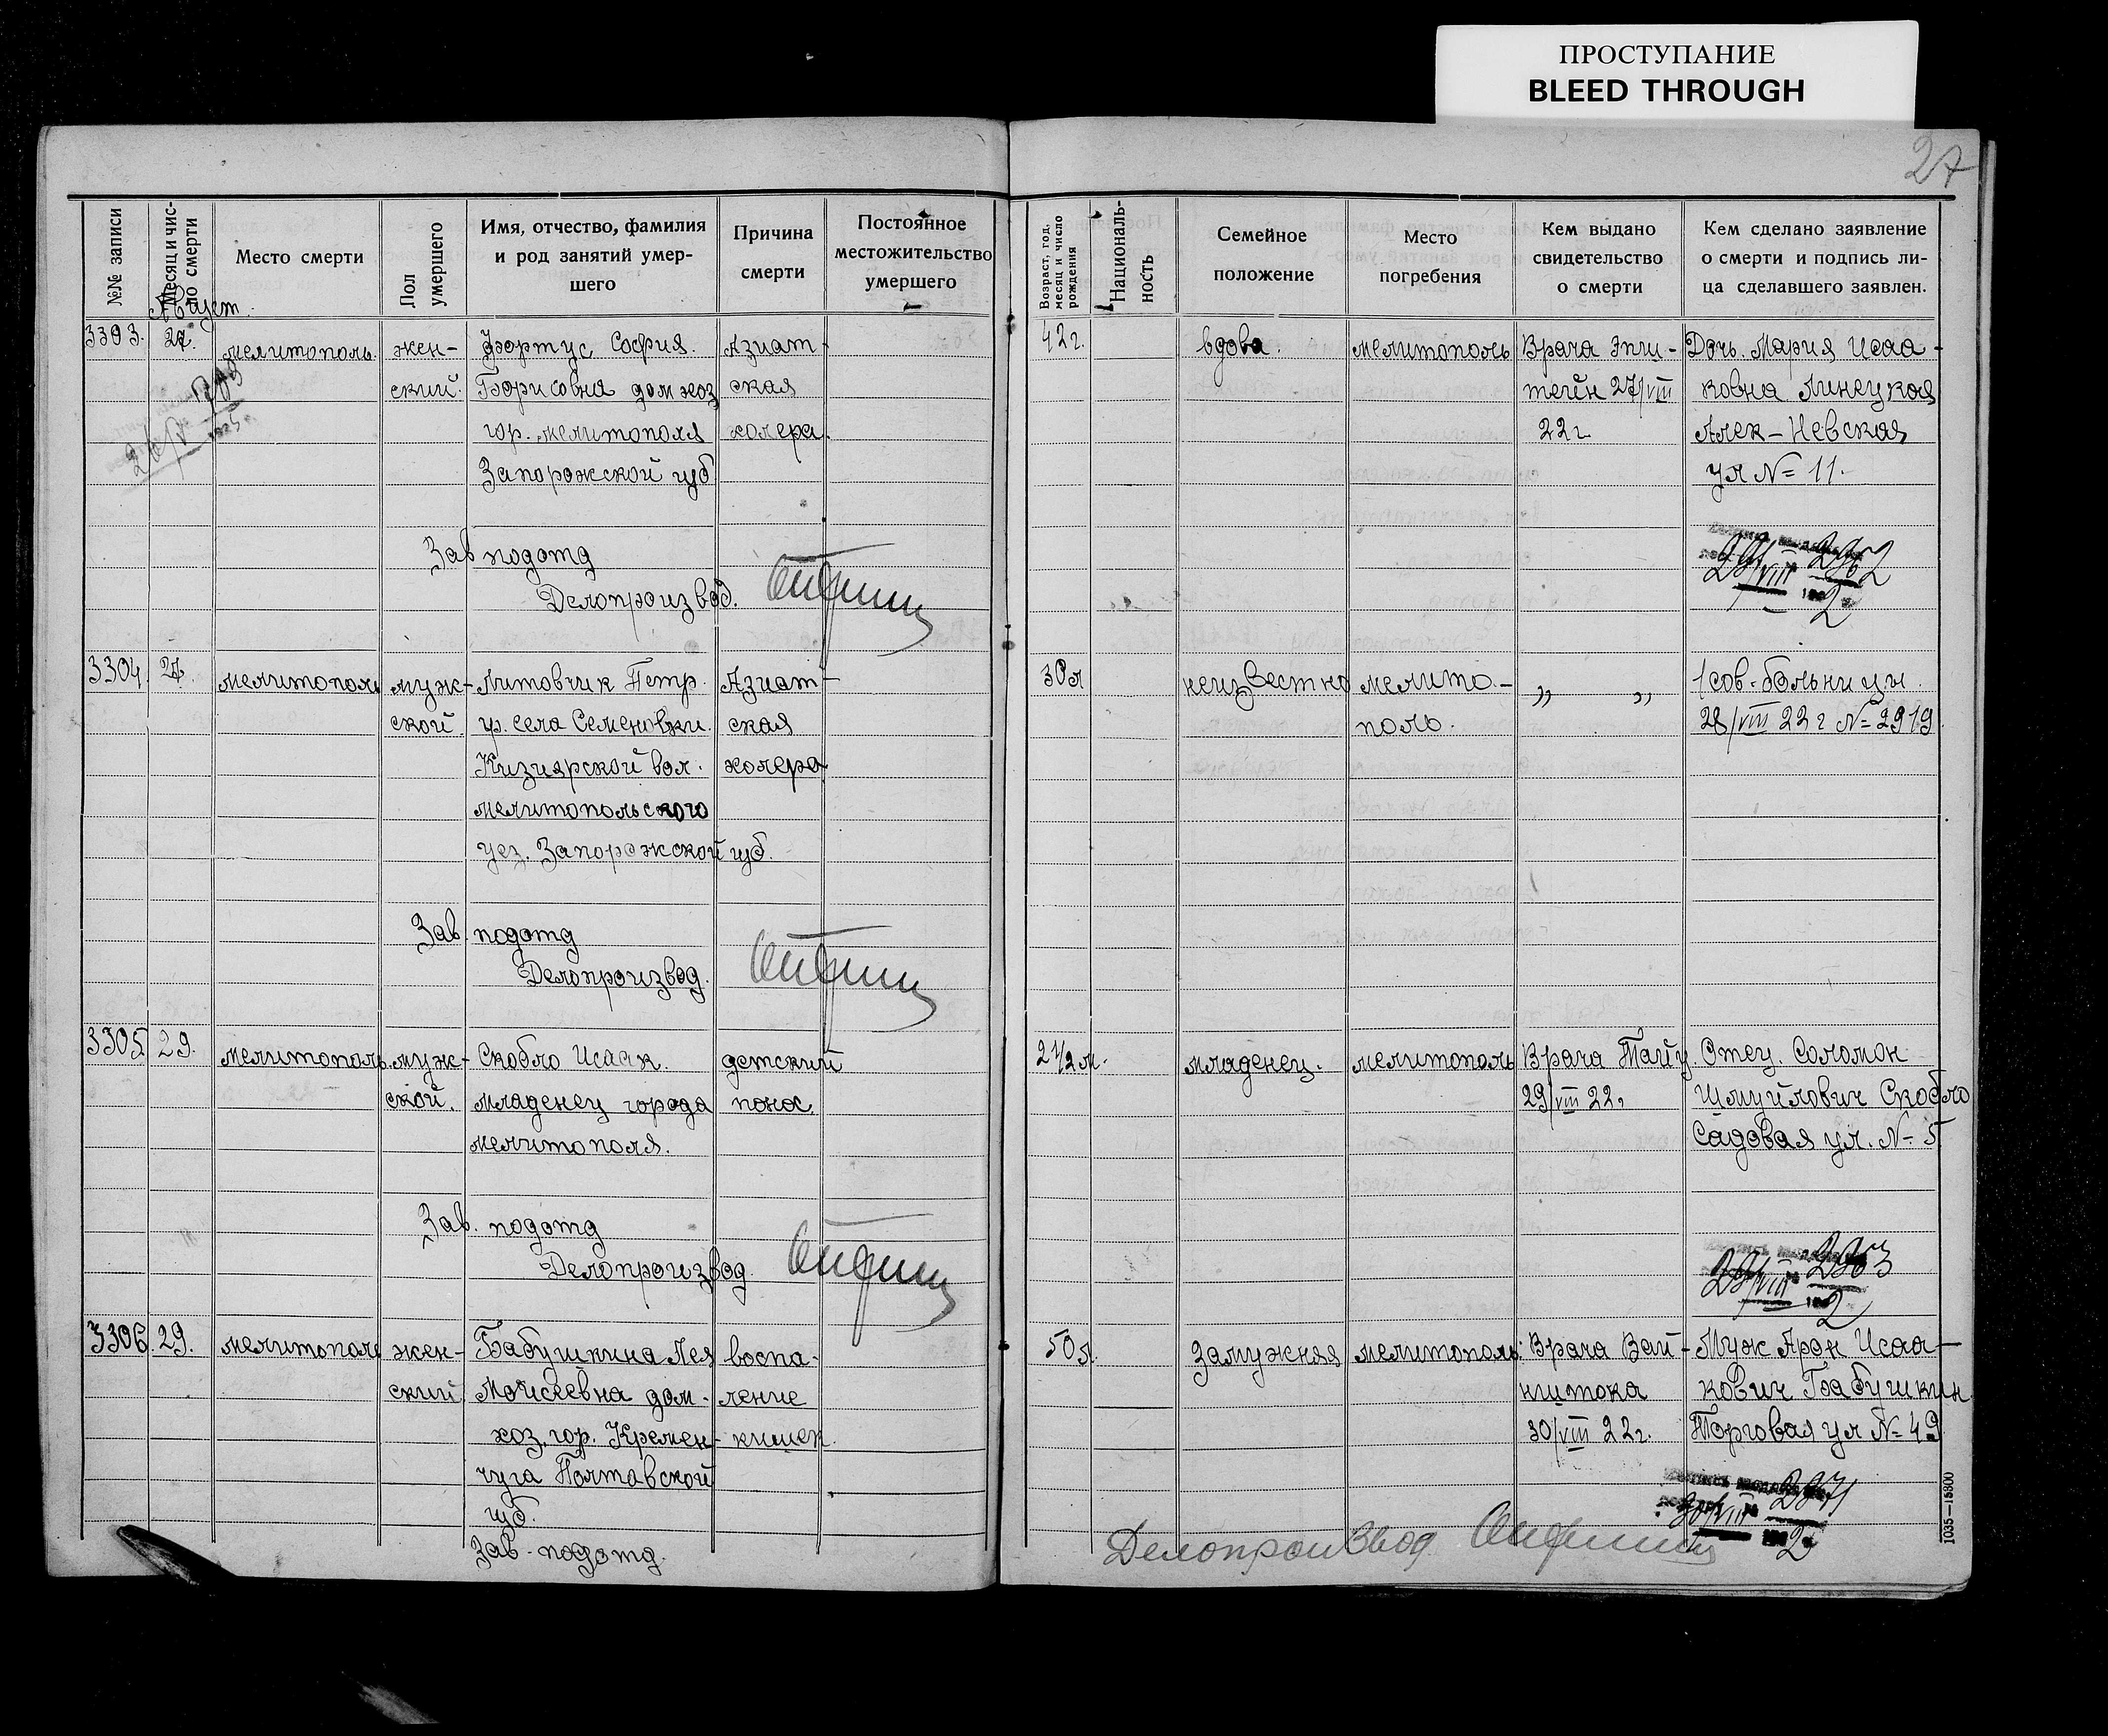 ПРОСТУПАНИЕ
BLEED THROUGH
27
№№ записи
Месяц и число смерти
Место смерти
Пол умершего
Имя, отчество, фамилия
и род занятий умер-
шего
Причина
смерти
Постоянное
местожительство
умершего
Возраст, год, месяц и число рождения
Националь-
ность
Семейное
положение
Место
погребения
Кем выдано
свидетельство
о смерти
Кем сделано заявление
о смерти и подпись ли-
ца сделавшего заявлен.
Август
3303.
27.
мелитополь.
жен-
ский.
София.
Борисовна дом хоз
гор. мелитополя
Запорожской губ
Азиат-
ская
холера.
42 г.
вдова.
мелитополь
Врача Эпш-
тейн 27/VIII
22 г.
Дочь. Мария Исаа-
ковна Линецкая
Алек-Невская
ул №= 11.
Зав подотд
Делопроизвод.
3304.
мелитополь
муж-
ской
Литовчик Петр.
гр. села Семеновки.
Кизиярской вол.
мелитопольского
уез. Запорожской губ.
Азиат-
ская
холера
30 л
неизвестно
мелито-
поль.
„ „
1 сов. больницы.
28/VIII 22 г №= 2919.
Зав. подотд
Делопроизвод.
3305.
29.
мелитополь.
муж-
ской.
Скобло Исаак.
младенец города
мелитополя.
детский
понос.
2 1/2 м.
младенец.
мелитополь
Врача Тайц.
29/VIII 22г
Отец. Соломон
Шмуйлович Скобло
Садовая ул. №- 5
Зав. подотд
Делопроизвод
3306.
29.
мелитополь
жен-
ский
Бабушкина Лея
Мойсеевна дом.
хоз. гор. Кремен-
чуга Полтавской
губ.
воспа-
ление
кишек.
50 л.
Замужняя
мелитополь.
Врача Вай-
нштока
30/VIII 22 г.
Муж Арон Исаа-
кович Бабушкин
Торговая ул №= 49
Зав. подотд.
Делопроизвод
1035—15300